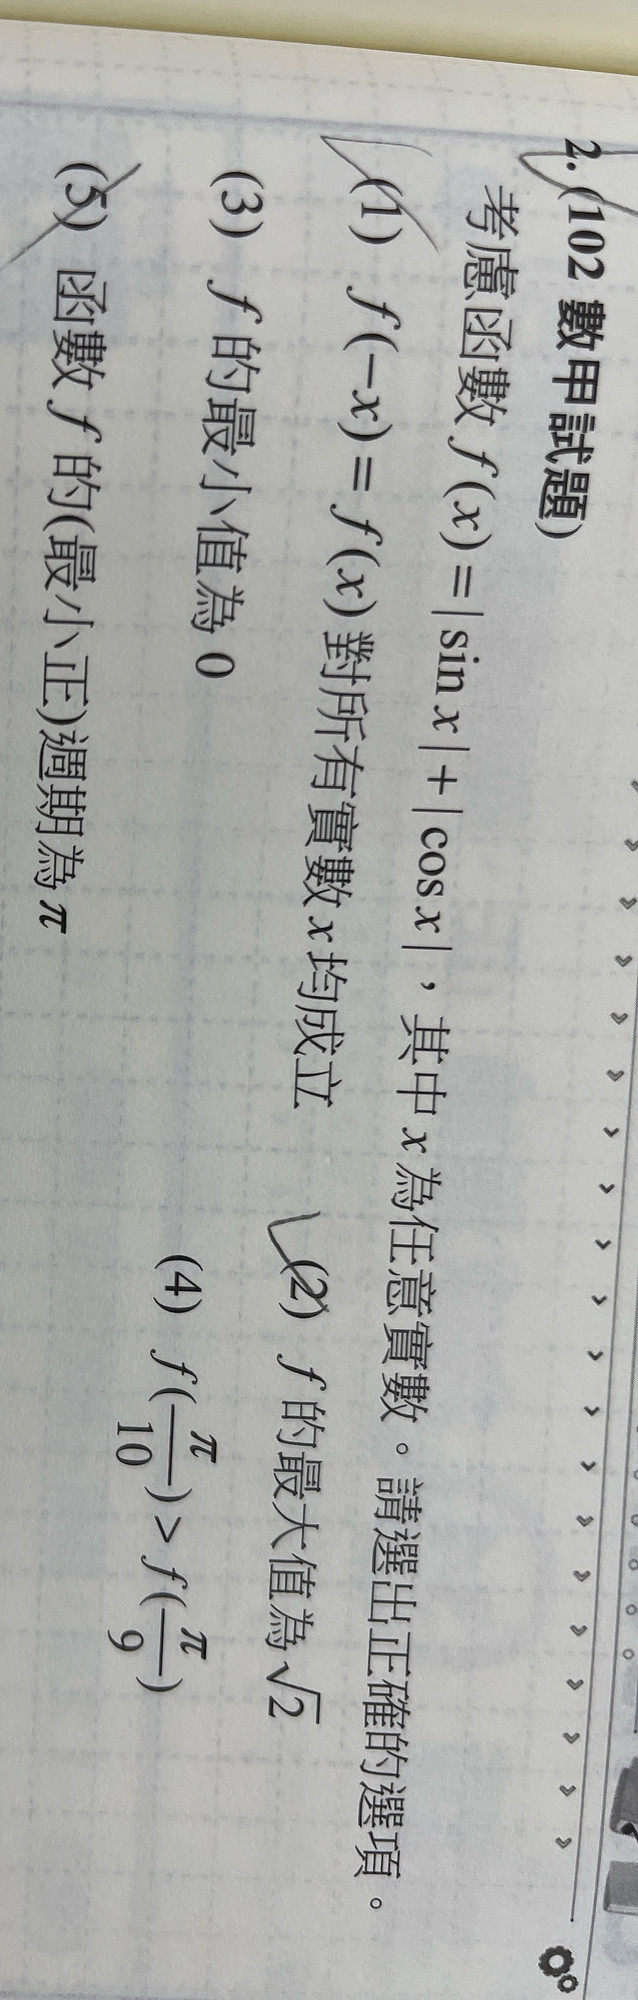 2. (102 數甲試題)
考慮函數 f(x)=|sin x|+|cos x|，其中 x 為任意實數。請選出正確的選項。
(1) f(−x)= f(x) 對所有實數 x 均成立 (2) f 的最大值為 √2
(3) f 的最小值為 0 (4) f(π/10)> f(π/9)
(5) 函數 f 的(最小正)週期為 π